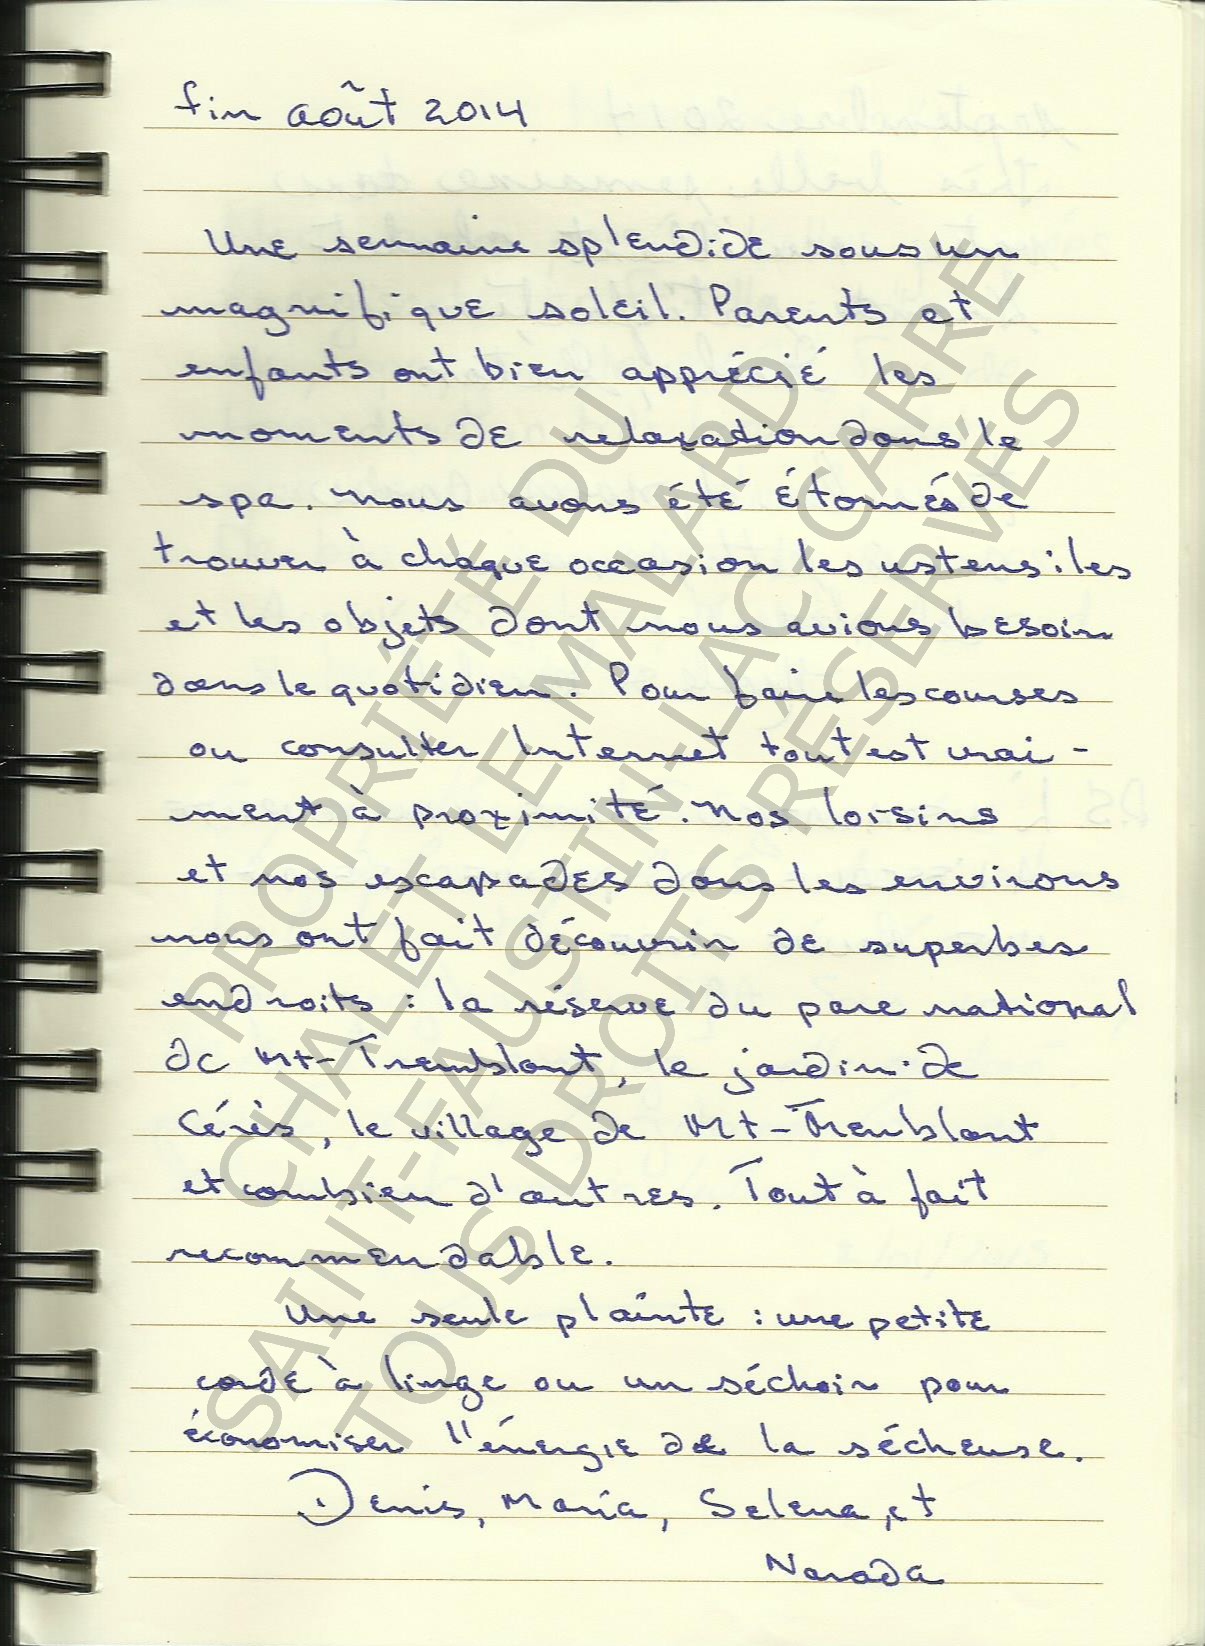 fin août 2014
Une semaine splendide sous un
magnifique soleil. Parents et
enfants ont bien apprécié les
moments de relaxation dans le
spa. Nous avons été étonnés de
trouver à chaque occasion les ustensiles
et les objets dont nous avions besoin
dans le quotidien. Pour faire les courses
ou consulter Internet tout est vrai-
ment à proximité. Nos loisirs
et nos escapades dans les environs
nous ont fait découvrir de superbes
endroits : la réserve du parc national
de Mt-Tremblant, le jardin de
Cérès, le village de Mt-Tremblant
et combien d'autres. Tout à fait
recommendable.
Une seule plainte : une petite
corde à linge ou un séchoir pour
économiser l'énergie de la sécheuse.
Denis, Maria, Selena, et
Narada
PROPRIÉTÉ DU
CHALET LE MALARD
SAINT-FAUSTIN-LAC-CARRÉ
TOUS DROITS RESERVÉS